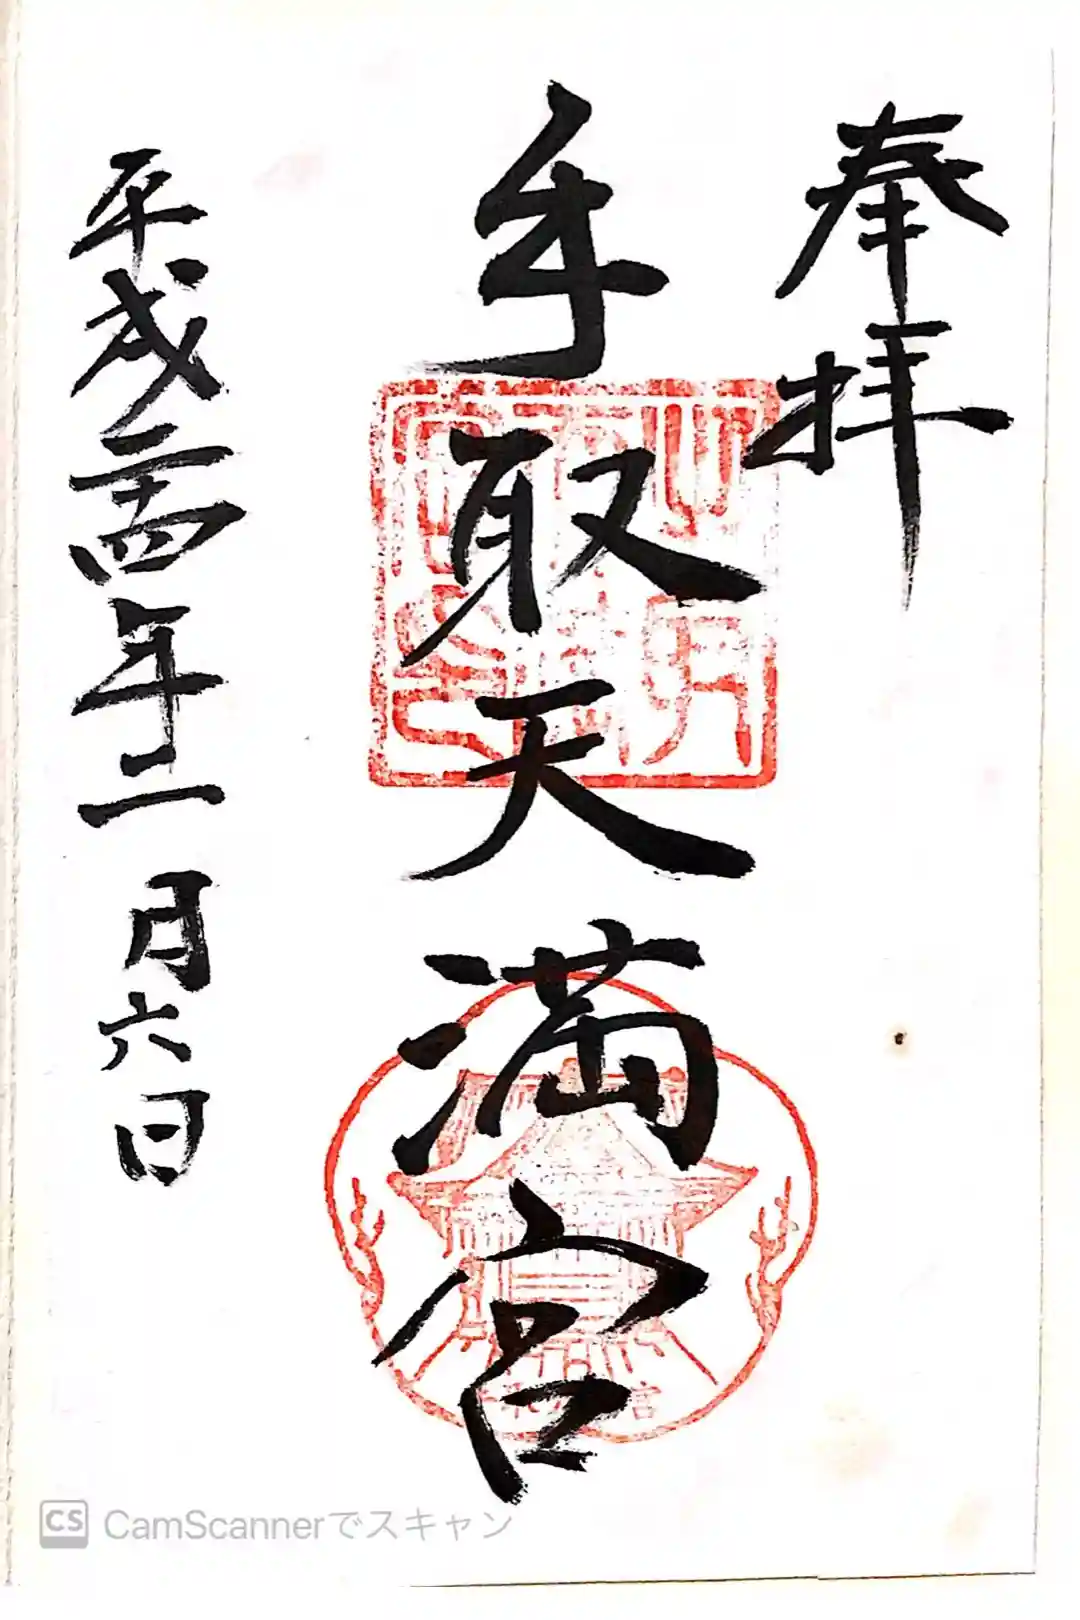 奉拝
手取天満宮
平成二十四年二月六日
CS CamScannerでスキャン